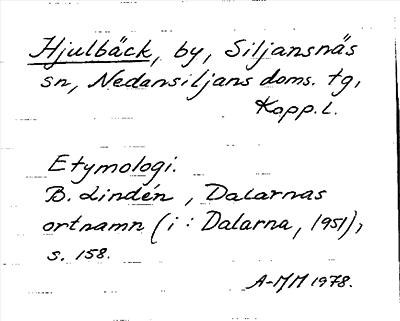 Hjulbäck, by, Siljansnäs
sn, Nedansiljans doms. tg,
Kopp.l.
Etymologi.
B. Lindén, Dalarnas
ortnamn (i: Dalarna, 1951),
s. 158.
A-MM 1978.